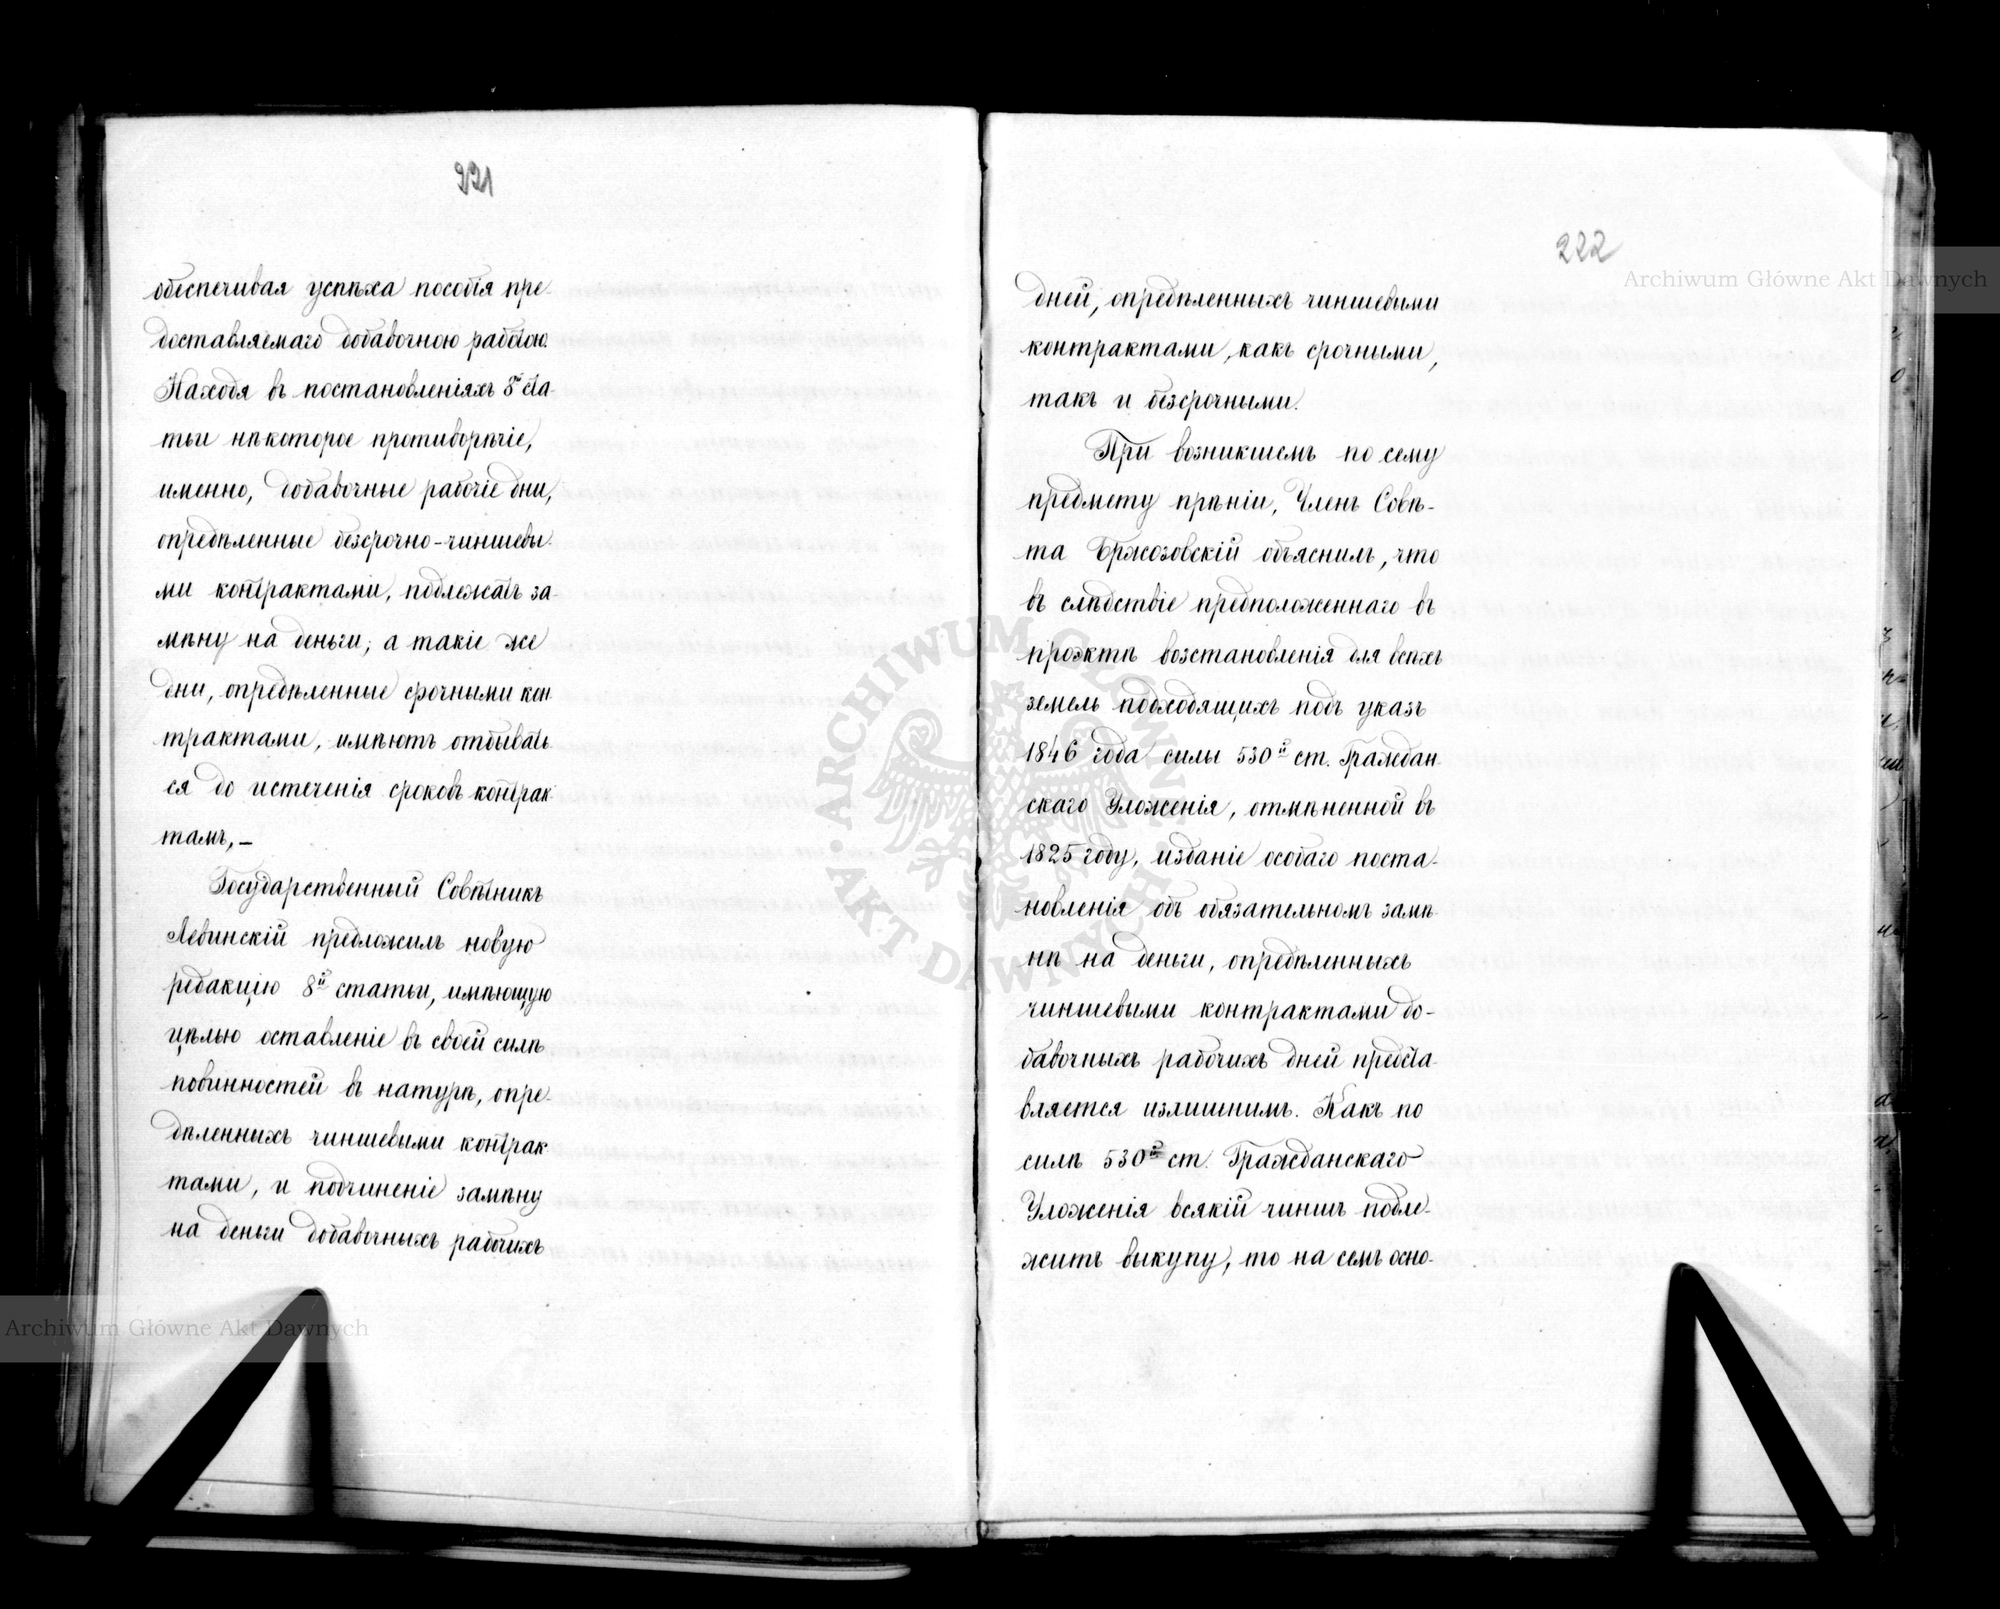 221
обеспечивая успѣха пособія пре-
доставляемаго добавочною работою.
Находя въ постановленіяхъ 8й ста-
тьи нѣкоторое противорѣчіе,
именно, добавочные рабочіе дни,
опредѣленные безсрочно-чиншевы-
ми контрактами, подлежатъ за-
мѣну на деньги; а такіе же
дни, опредѣленные срочными кон-
трактами, имѣютъ отбывать-
ся до истеченія сроковъ контрак-
тамъ,—
Государственный Совѣтникъ
Левинскій предложилъ новую
редакцію 8й статьи, имѣющую
цѣлью оставленіе въ своей силѣ
повинностей въ натурѣ, опре-
дѣленныхъ чиншевыми контрак-
тами, и подчиненіе замѣну
на деньги добавочныхъ рабочихъ
222
дней, опредѣленныхъ чиншевыми
контрактами, какъ срочными,
такъ и безсрочными.
При возникшемъ по сему
предмету прѣніи, Членъ Совѣ-
та Бржозовскій объяснилъ, что
въ слѣдствіе предположеннаго въ
проэктѣ возстановленія для всѣхъ
земель подходящихъ подъ указъ
1846 года силы 530й ст. Граждан-
скаго Уложенія, отмѣненной въ
1825 году, изданіе особаго поста-
новленія объ обязательномъ замѣ-
нѣ на деньги, опредѣленныхъ
чиншевыми контрактами до-
бавочныхъ рабочихъ дней предста-
вляется излишнимъ. Какъ по
силѣ 530й ст. Гражданскаго
Уложенія всякій чиншъ подле-
житъ выкупу, то на семъ осно-
Archiwum Główne Akt Dawnych
Archiwum Główne Akt Dawnych
ARCHIWUM GŁÓWNE AKT DAWNYCH